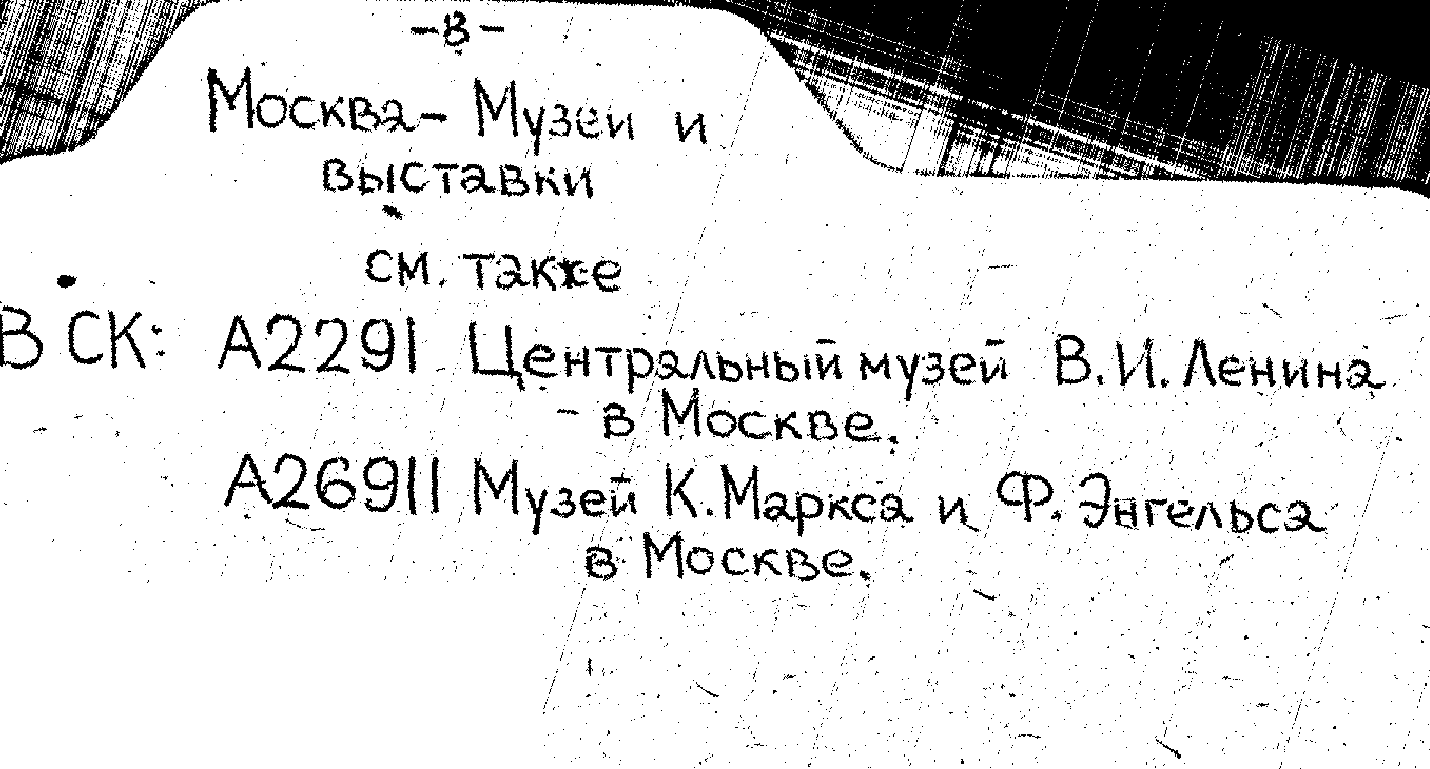 -в-
Москва- Музеи и
выставки
см. также
В СК: А2291 Центральный музей В.И. Ленина
- в Москве.
А26911 Музей К. Маркса и Ф. Энгельса
в Москве.